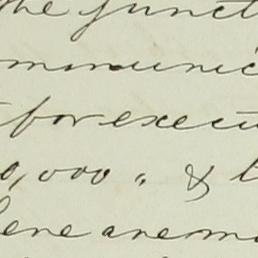 the junct
mmunic
for execu
0,000, &
here are m